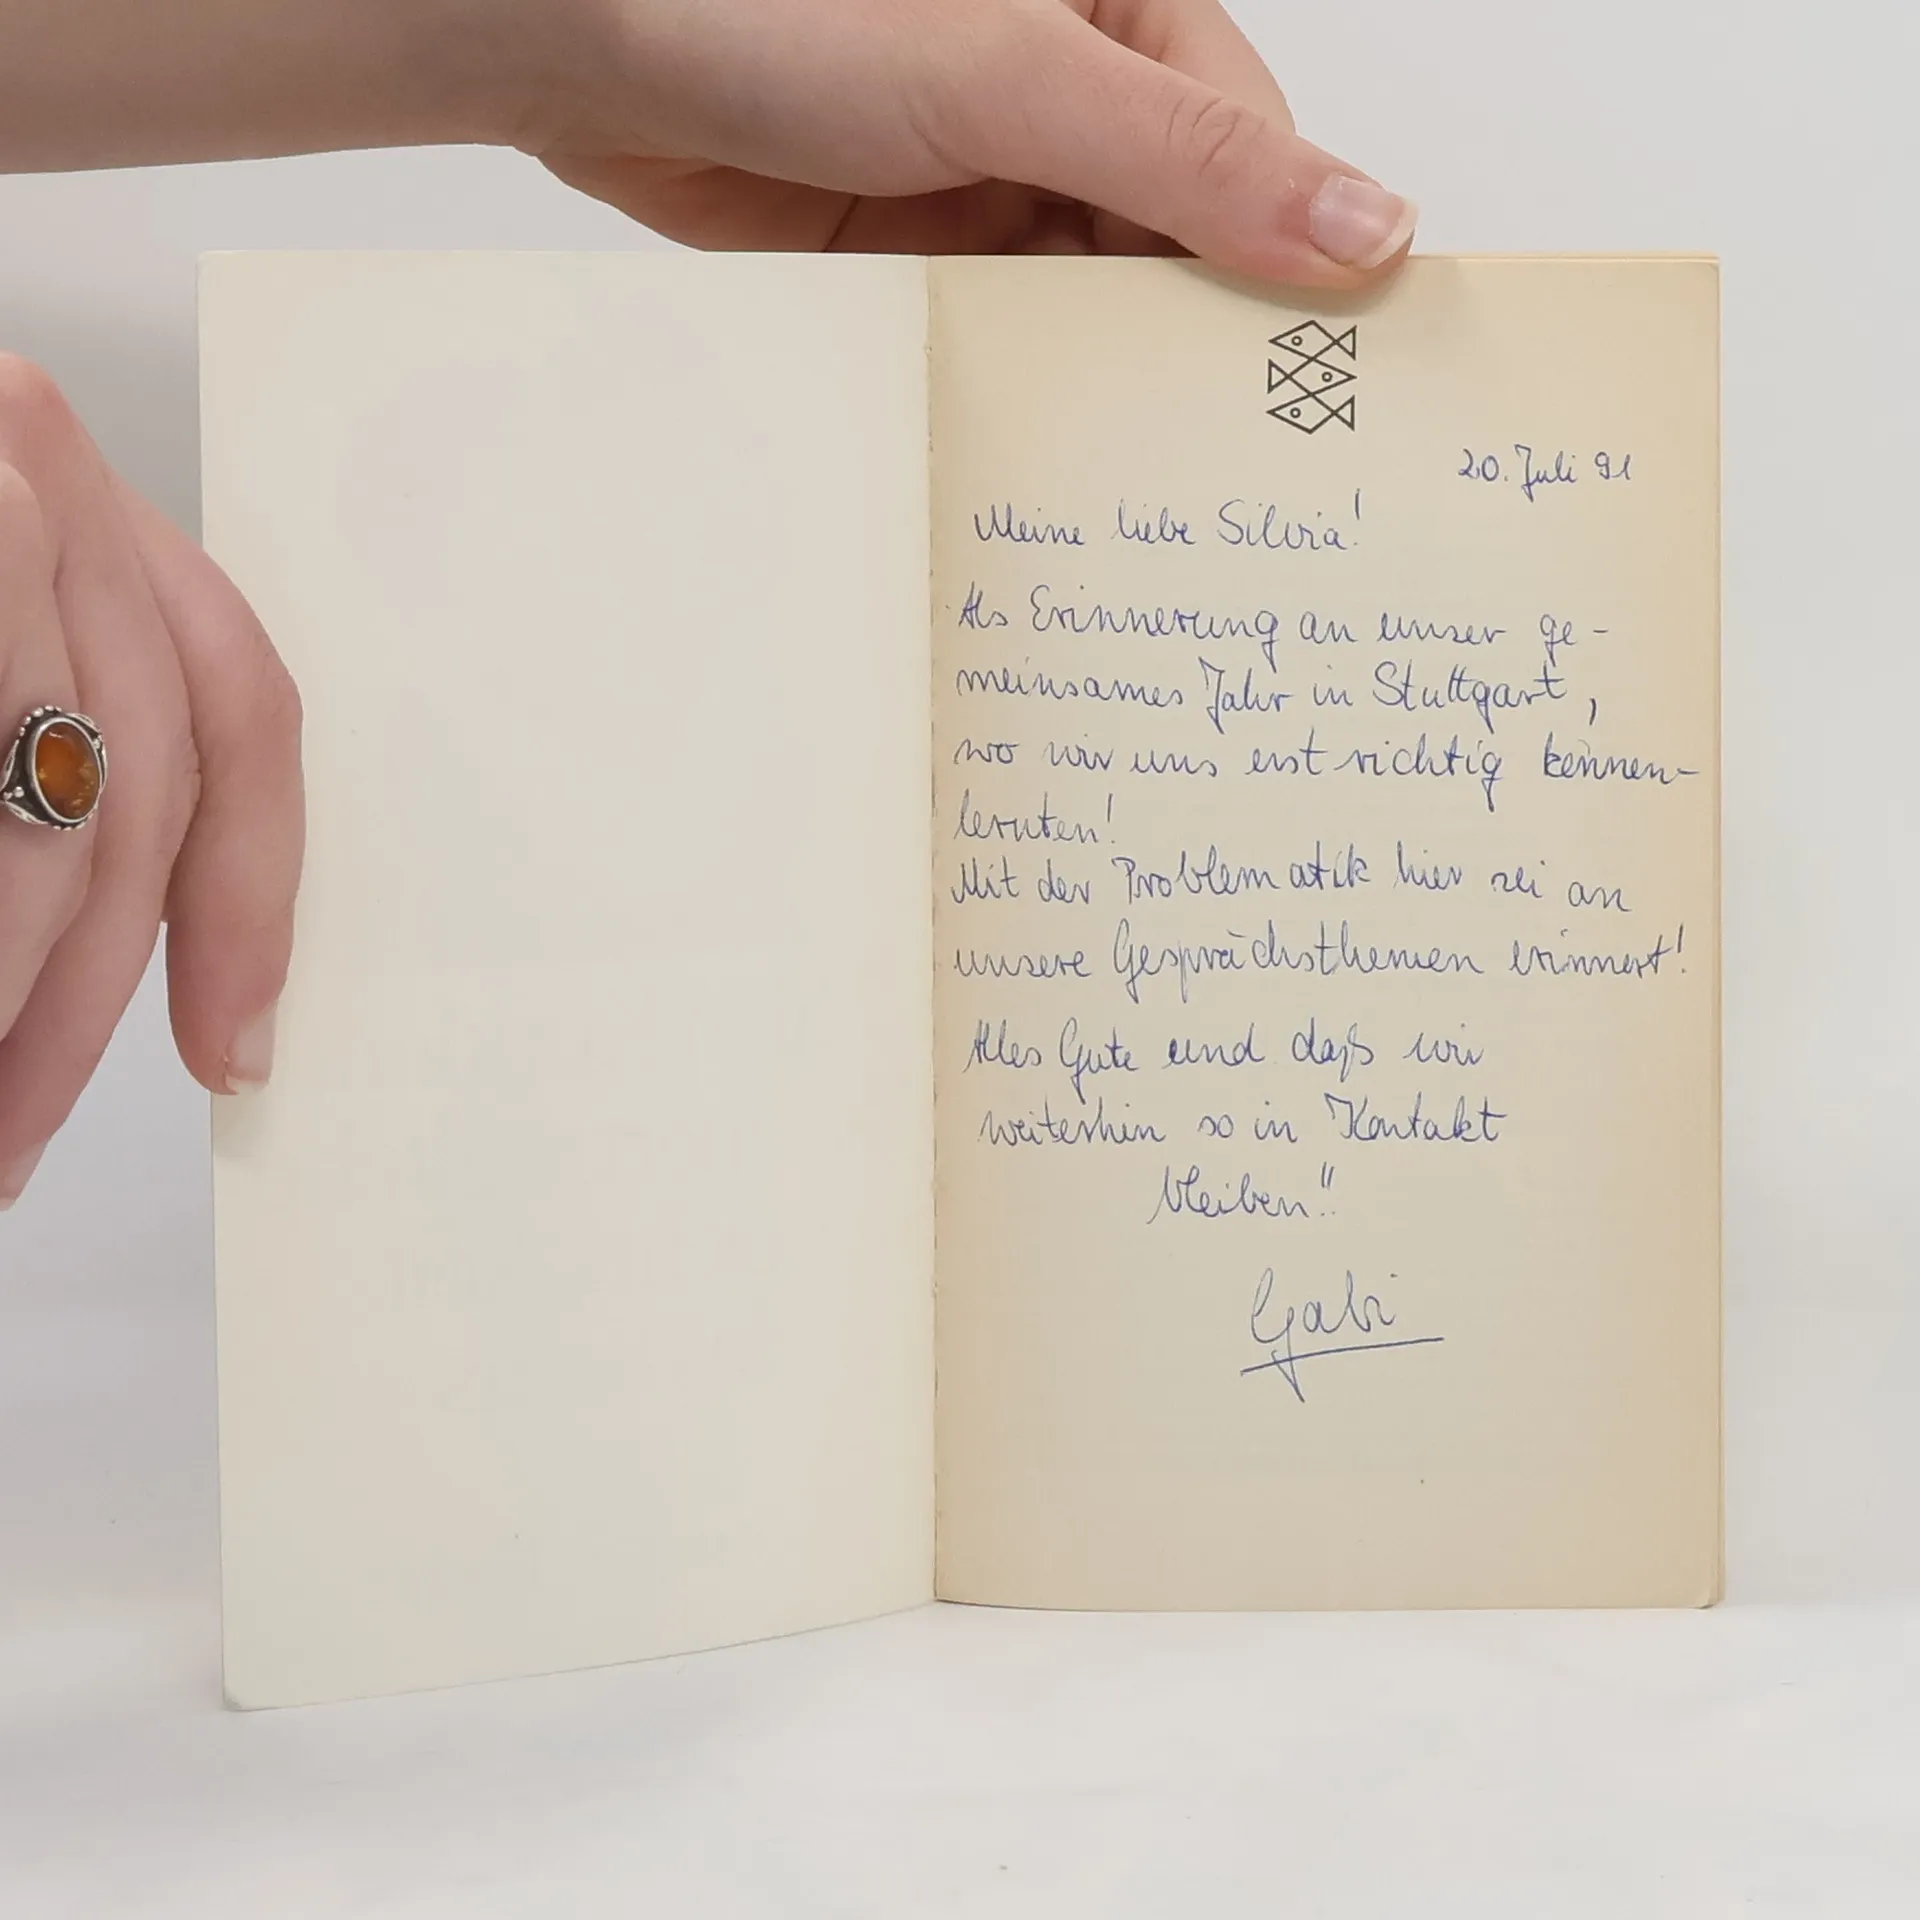 20. Juli 91
Meine liebe Silvia!
Als Erinnerung an unser ge-
meinsames Jahr in Stuttgart,
wo wir uns erst richtig kennen-
lernten!
Mit der Problematik hier sei an
unsere Gesprächsthemen erinnert!
Alles Gute und daß wir
weiterhin so in Kontakt
bleiben!!
Gabi